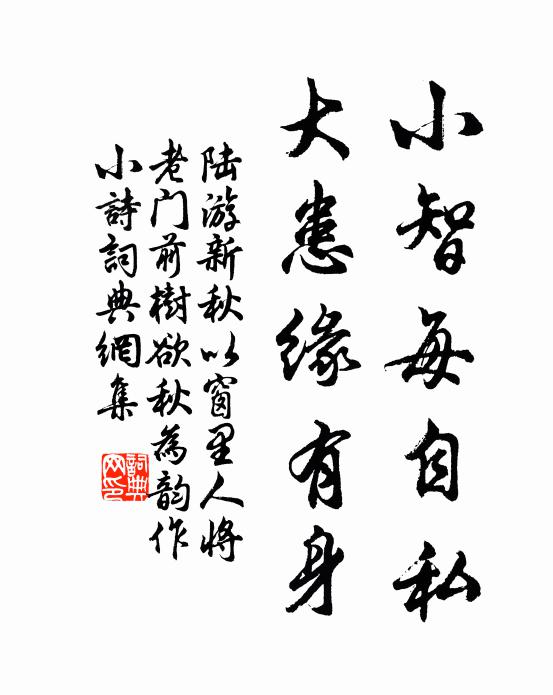 小智每自私
大患缘有身
陆游新秋以窗里人将
老门前樹欲秋為韵作
小詩詞典網集
詞典
网印